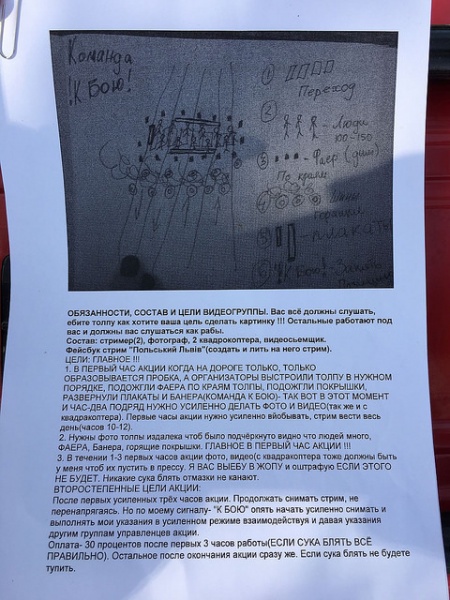 Команда
!К Бою!
① Переход
② Люди
100-150
③ Фаер (дым)
По краям
④ Шины
горящие
⑤ - плакаты
⑥ !К Бою! -
ОБЯЗАННОСТИ, СОСТАВ И ЦЕЛИ ВИДЕОГРУППЫ. Вас всё должны слушать,
ебите толпу как хотите ваша цель сделать картинку !!! Остальные работают под
вас и должны вас слушаться как рабы.
Состав: стример(2), фотограф, 2 квадрокоптера, видеосьемщик.
Фейсбук стрим "Польський Львів"(создать и лить на него стрим).
ЦЕЛИ: ГЛАВНОЕ !!!
1. В ПЕРВЫЙ ЧАС АКЦИИ КОГДА НА ДОРОГЕ ТОЛЬКО, ТОЛЬКО
ОБРАЗОВЫВАЕТСЯ ПРОБКА, А ОРГАНИЗАТОРЫ ВЫСТРОИЛИ ТОЛПУ В НУЖНОМ
ПОРЯДКЕ, ПОДОЖГЛИ ФАЕРА ПО КРАЯМ ТОЛПЫ, ПОДОЖГЛИ ПОКРЫШКИ,
РАЗВЕРНУЛИ ПЛАКАТЫ И БАНЕРА(КОМАНДА К БОЮ)- ТАК ВОТ В ЭТОТ МОМЕНТ
И ЧАС-ДВА ПОДРЯД НУЖНО УСИЛЕННО ДЕЛАТЬ ФОТО И ВИДЕО(так же и с
квадракоптера). Первые часы акции нужно усиленно вйобывать, стрим вести весь
день(часов 10-12).
2. Нужны фото толпы издалека чтоб было подчёркнуто видно что людей много,
ФАЕРА, Банера, горящие покрышки. ГЛАВНОЕ В ПЕРВЫЙ ЧАС АКЦИИ !!!
3. В течении 1-3 первых часов акции фото, видео(с квадракоптера тоже должны быть
у меня чтоб их пустить в прессу. Я ВАС ВЫЕБУ В ЖОПУ и оштрафую ЕСЛИ ЭТОГО
НЕ БУДЕТ. Никакие сука блять отмазки не канают.
ВТОРОСТЕПЕННЫЕ ЦЕЛИ АКЦИИ:
После первых усиленных трёх часов акции. Продолжать снимать стрим, не
перенапрягаясь. Но по моему сигналу- "К БОЮ" опять начать усиленно снимать и
выполнять мои указания в усиленном режиме взаимодействуя и давая указания
другим группам управленцев акции.
Оплата- 30 процентов после первых 3 часов работы(ЕСЛИ СУКА БЛЯТЬ ВСЁ
ПРАВИЛЬНО). Остальное после окончания акции сразу же. Если сука блять не будете
тупить.